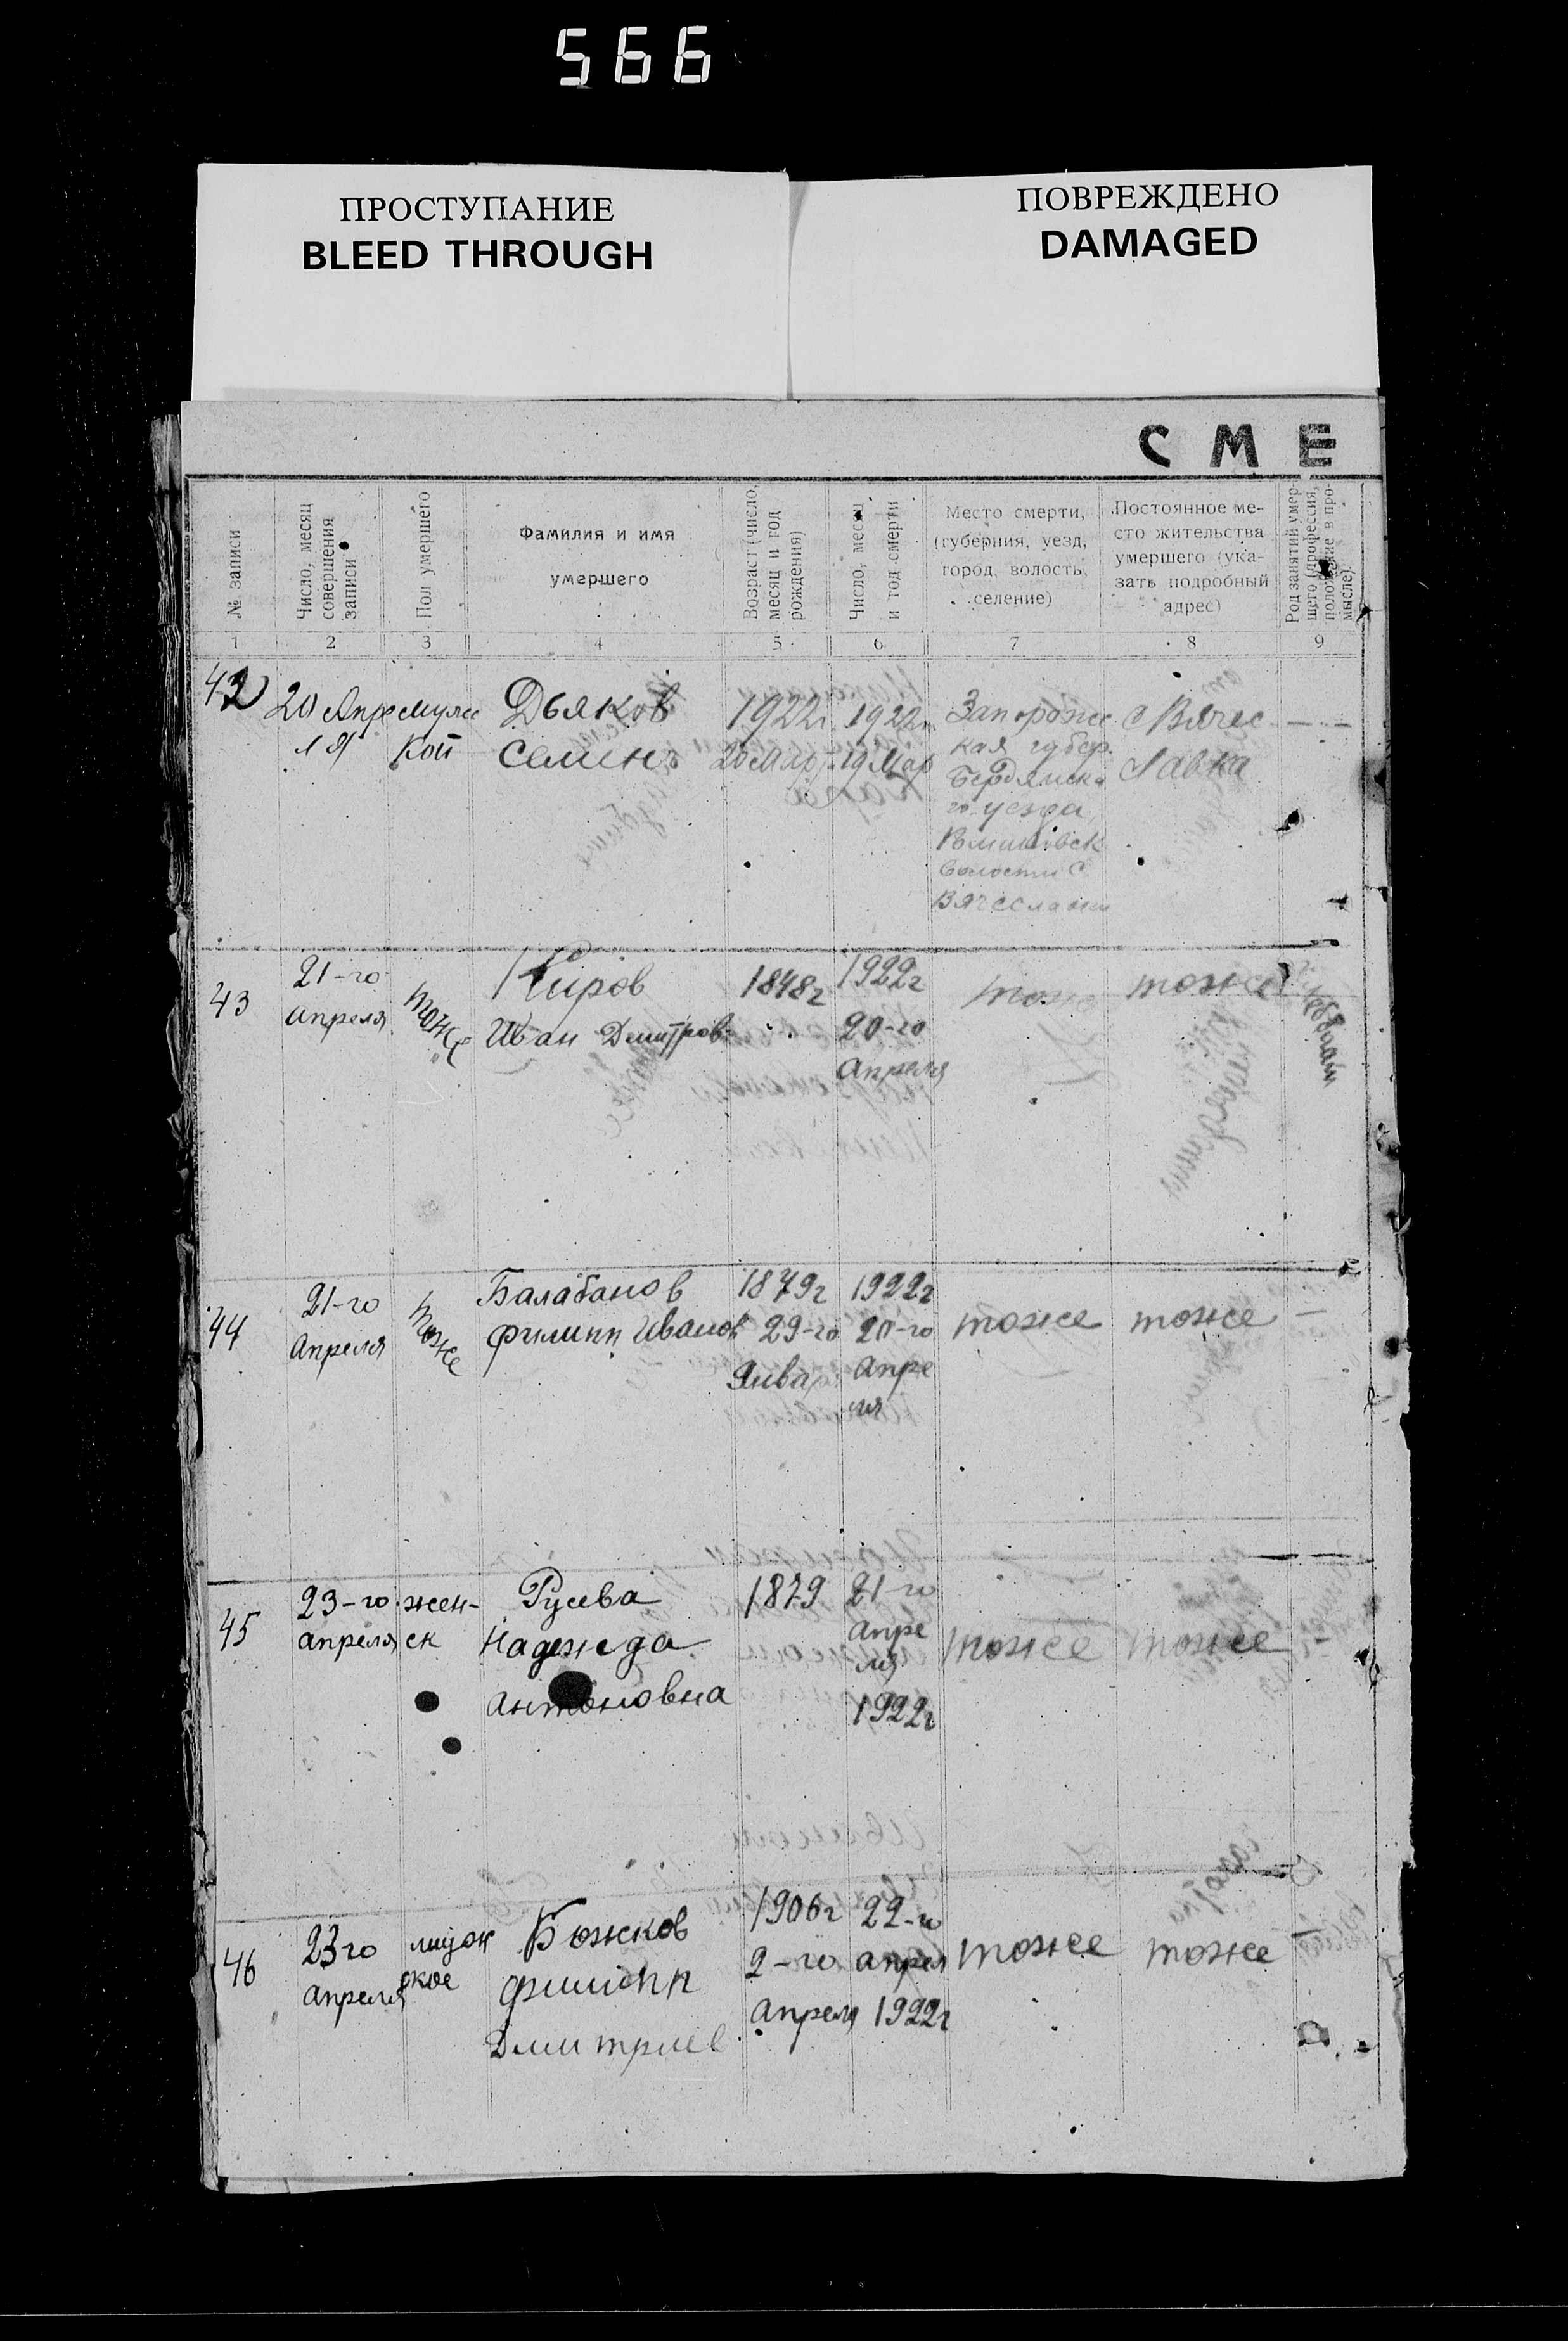 566
ПРОСТУПАНИЕ
BLEED THROUGH
ПОВРЕЖДЕНО
DAMAGED
СМЕ
№ записи
Число, месяц
совершения
записи
Пол умершего
Фамилия и имя
умершего
Возраст (число,
месяц и год
рождения)
Число, месяц
и год смерти
Место смерти,
(губерния, уезд,
город, волость,
селение)
Постоянное ме-
сто жительства
умершего (ука-
зать подробный
адрес)
Род занятий умер-
шего (профессия,
положение в про-
мысле).
1 2 3 4 5 6 7 8 9
42
20 Апре
ля
мужс
кой
Дьяков
Семинъ
1922г
20 Мар
1922г
19 Мар
Запорожс
кая губер.
Бердянска
го уезда
волости с
Вячеславки
с Вячес
лавка
43
21-го
апреля
тоже
Киров
Иван Дмитров
1848г
1922г
20-го
апреля
тоже
тоже
44
21-го
апреля
тоже
Балабанов
филипп Иванов
1879г
29-го
Январ
1922г
20-го
апре
ля
тоже
тоже
45
23-го
апреля
жен-
ск
Русева
Надежда
антоновна
1879
21-го
апре
ля
1922г
тоже
тоже
46
23го
апреля
мужс
кое
Божков
филипп
Дмитриев
1906г
2-го
апреля
22-го
апрел
1922г
тоже
тоже